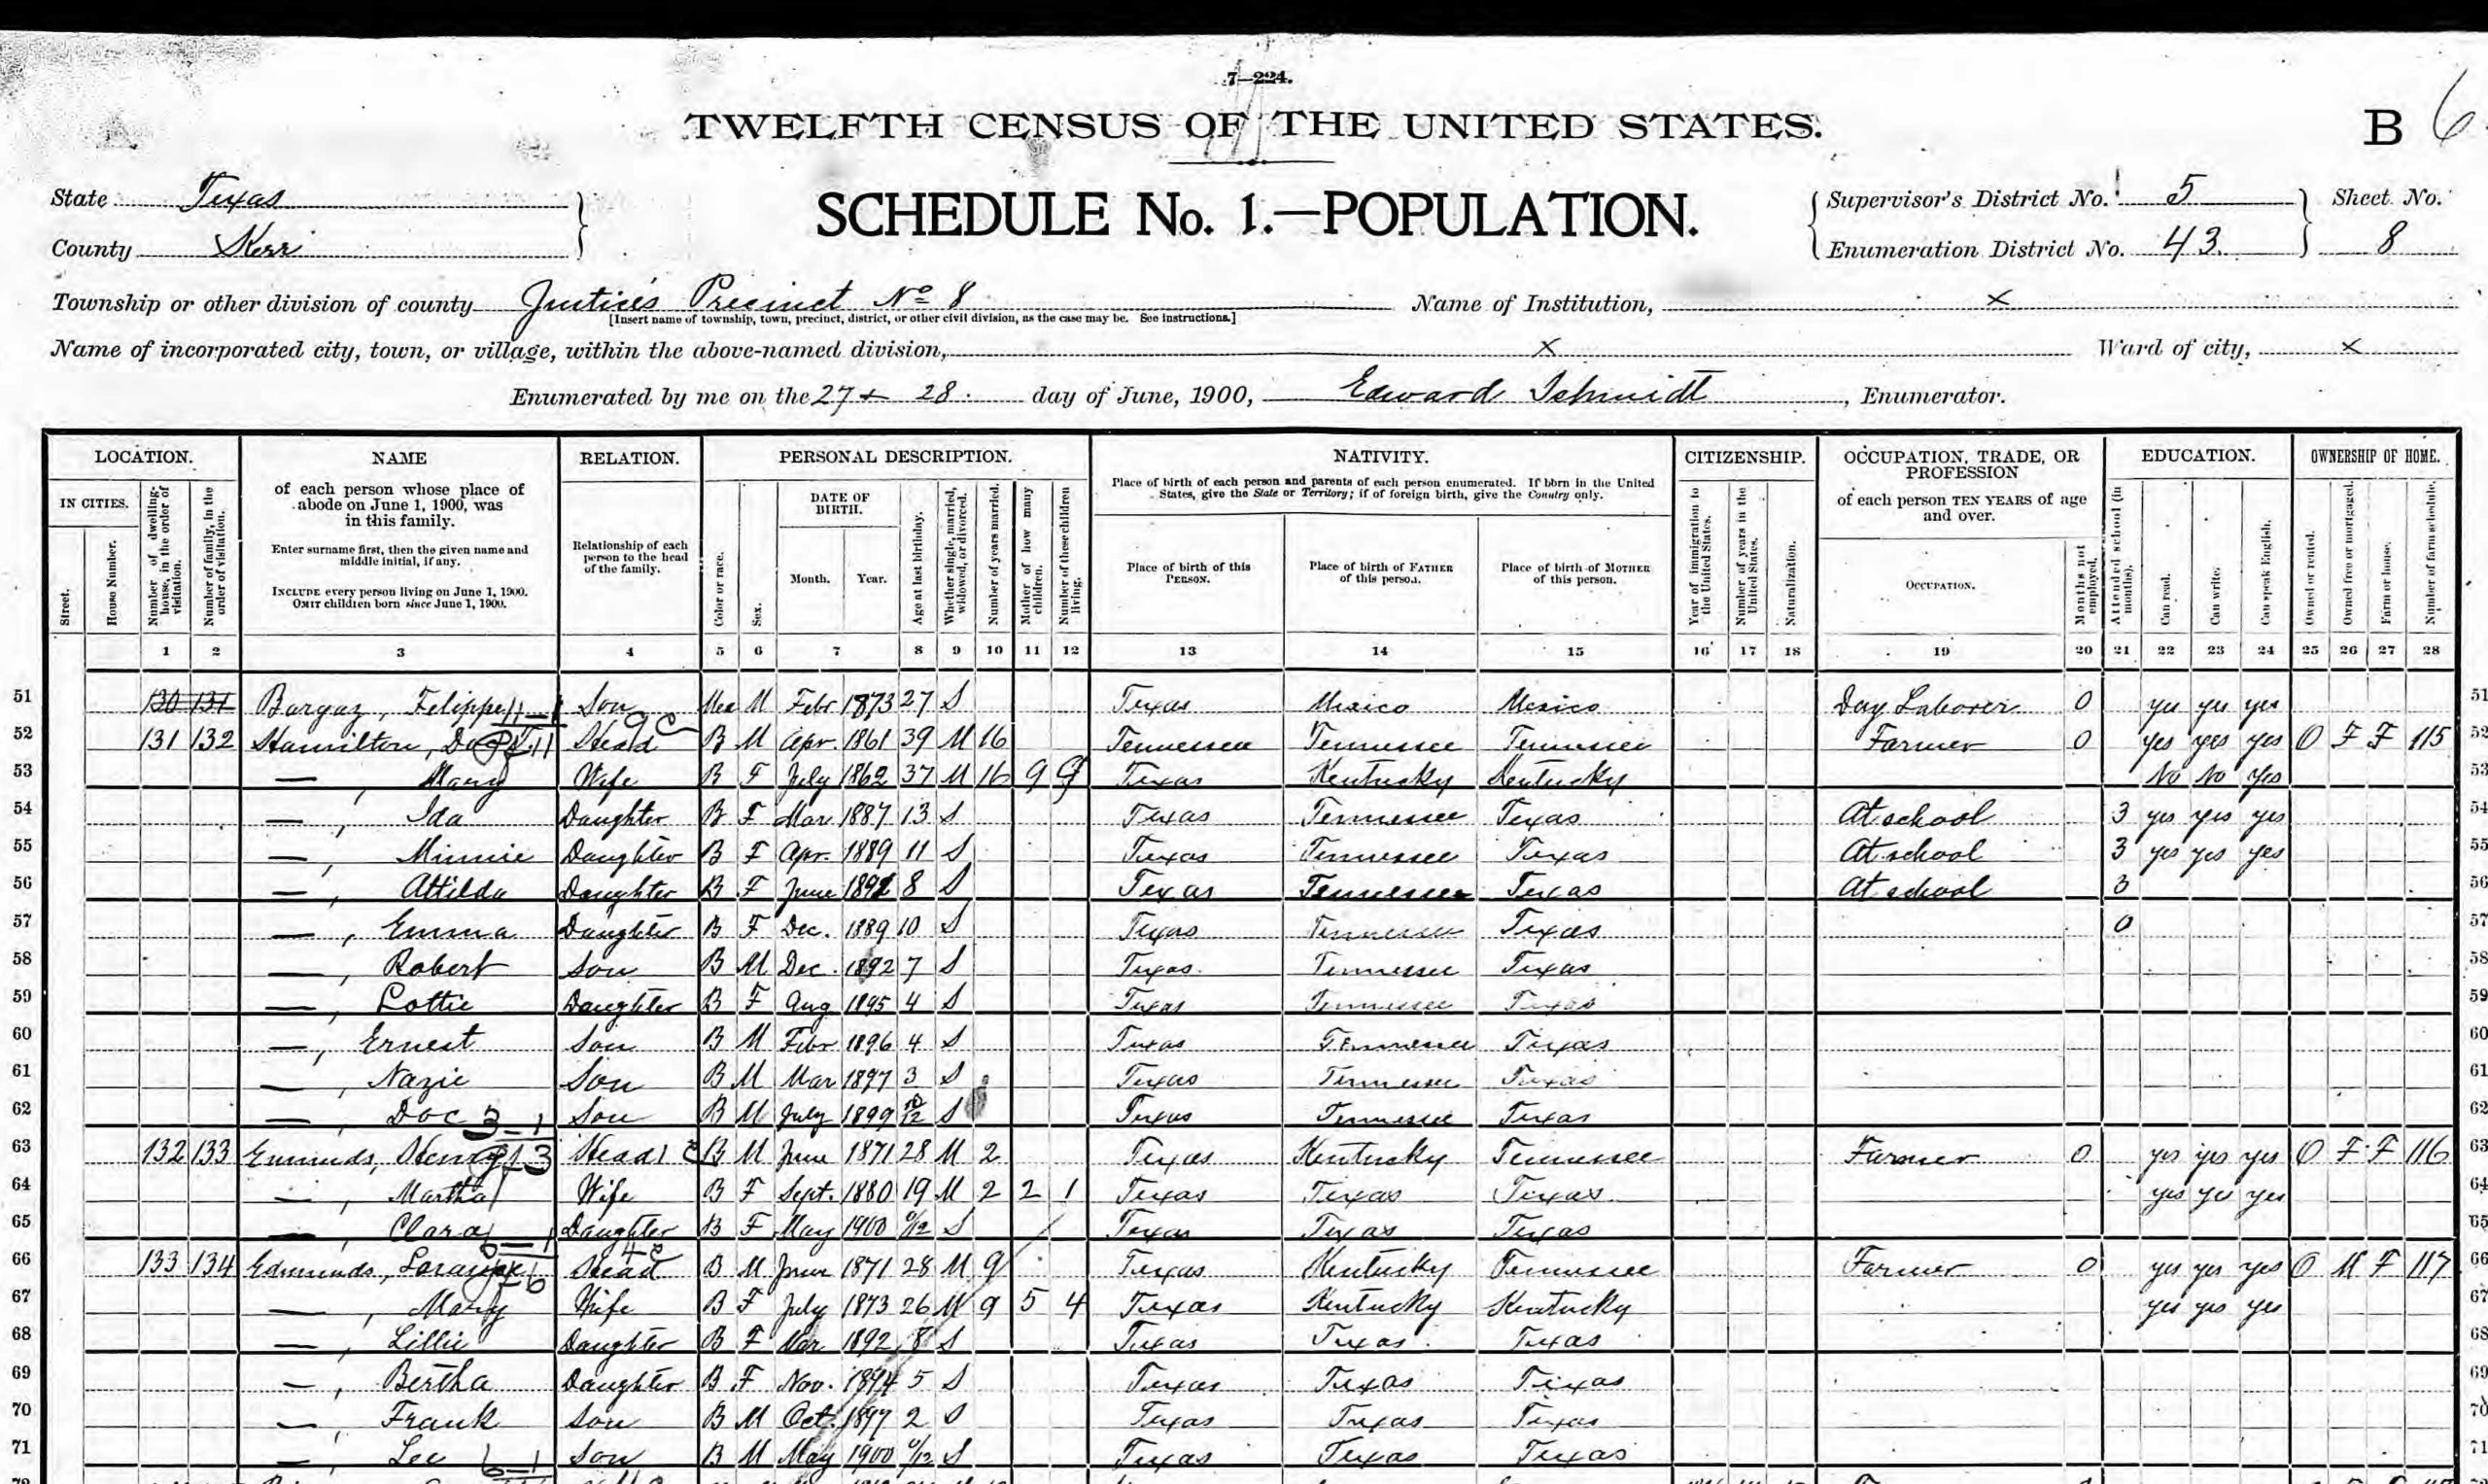 7—224.
TWELFTH CENSUS OF THE UNITED STATES.
B 6
State Texas
County Kerr
SCHEDULE No. 1.—POPULATION.
Supervisor's District No. 5
Enumeration District No. 43
Sheet No.
8
Township or other division of county Justices Precinct No 8 Name of Institution, x
[Insert name of township, town, precinct, district, or other civil division, as the case may be. See instructions.]
Name of incorporated city, town, or village, within the above-named division, x Ward of city, x
Enumerated by me on the 27 + 28 day of June, 1900, Edward Schmidt, Enumerator.
LOCATION.
IN CITIES.
Street.
House Number.
Number of dwelling-house, in the order of visitation.
Number of family, in the order of visitation.
NAME
of each person whose place of abode on June 1, 1900, was in this family.
Enter surname first, then the given name and middle initial, if any.
INCLUDE every person living on June 1, 1900.
OMIT children born since June 1, 1900.
RELATION.
Relationship of each person to the head of the family.
PERSONAL DESCRIPTION.
Color or race.
Sex.
DATE OF BIRTH.
Month. Year.
Age at last birthday.
Whether single, married, widowed, or divorced.
Number of years married.
Mother of how many children.
Number of these children living.
NATIVITY.
Place of birth of each person and parents of each person enumerated. If born in the United States, give the State or Territory; if of foreign birth, give the Country only.
Place of birth of this PERSON.
Place of birth of FATHER of this person.
Place of birth of MOTHER of this person.
CITIZENSHIP.
Year of immigration to the United States.
Number of years in the United States.
Naturalization.
OCCUPATION, TRADE, OR PROFESSION
of each person TEN YEARS of age and over.
OCCUPATION.
Months not employed.
EDUCATION.
Attended school (in months).
Can read.
Can write.
Can speak English.
OWNERSHIP OF HOME.
Owned or rented.
Owned free or mortgaged.
Farm or house.
Number of farm schedule.
1 2 3 4 5 6 7 8 9 10 11 12 13 14 15 16 17 18 19 20 21 22 23 24 25 26 27 28
51 130 131 Bargaz, Felippe Son Mex M Febr 1873 27 S Texas Mexico Mexico Day Laborer 0 yes yes yes 51
52 131 132 Hamilton, Head B M Apr. 1861 39 M 16 Tennessee Tennessee Tennessee Farmer 0 yes yes yes O F F 115 52
53 — Mary Wife B F July 1862 37 M 16 9 9 Texas Kentucky Kentucky No No Yes 53
54 —, Ida Daughter B F Mar 1887 13 S Texas Tennessee Texas At school 3 yes yes yes 54
55 —, Minnie Daughter B F Apr. 1889 11 S Texas Tennessee Texas At school 3 yes yes yes 55
56 —, Attilda Daughter B F June 8 S Texas Tennessee Texas At school 3 56
57 —, Emma Daughter B F Dec. 1889 10 S Texas Tennessee Texas 0 57
58 —, Robert Son B M Dec. 1892 7 S Texas Tennessee Texas 58
59 —, Lottie Daughter B F Aug 1895 4 S Texas Tennessee Texas 59
60 —, Ernest Son B M Febr 1896 4 S Texas Tennessee Texas 60
61 —, Nazie Son B M Mar 1897 3 S Texas Tennessee Texas 61
62 —, Doc 3-1 Son B M July 1899 10/12 S Texas Tennessee Texas 62
63 132 133 Emunds, Henry Head B M June 1871 28 M 2 Texas Kentucky Tennessee Farmer 0 yes yes yes O F F 116 63
64 —, Martha Wife B F Sept. 1880 19 M 2 2 1 Texas Texas Texas yes yes yes 64
65 —, Clara Daughter B F May 1900 0/12 S Texas Texas Texas 65
66 133 134 Edmunds, Head B M June 1871 28 M 9 Texas Kentucky Tennessee Farmer 0 yes yes yes O M F 117 66
67 —, Mary Wife B F July 1873 26 M 9 5 4 Texas Kentucky Kentucky yes yes yes 67
68 —, Lillie Daughter B F Mar 1892 8 S Texas Texas Texas 68
69 —, Bertha Daughter B F Nov. 1894 5 S Texas Texas Texas 69
70 —, Frank Son B M Oct. 1897 2 S Texas Texas Texas 70
71 —, Lee 6-1 Son B M May 1900 0/12 S Texas Texas Texas 71